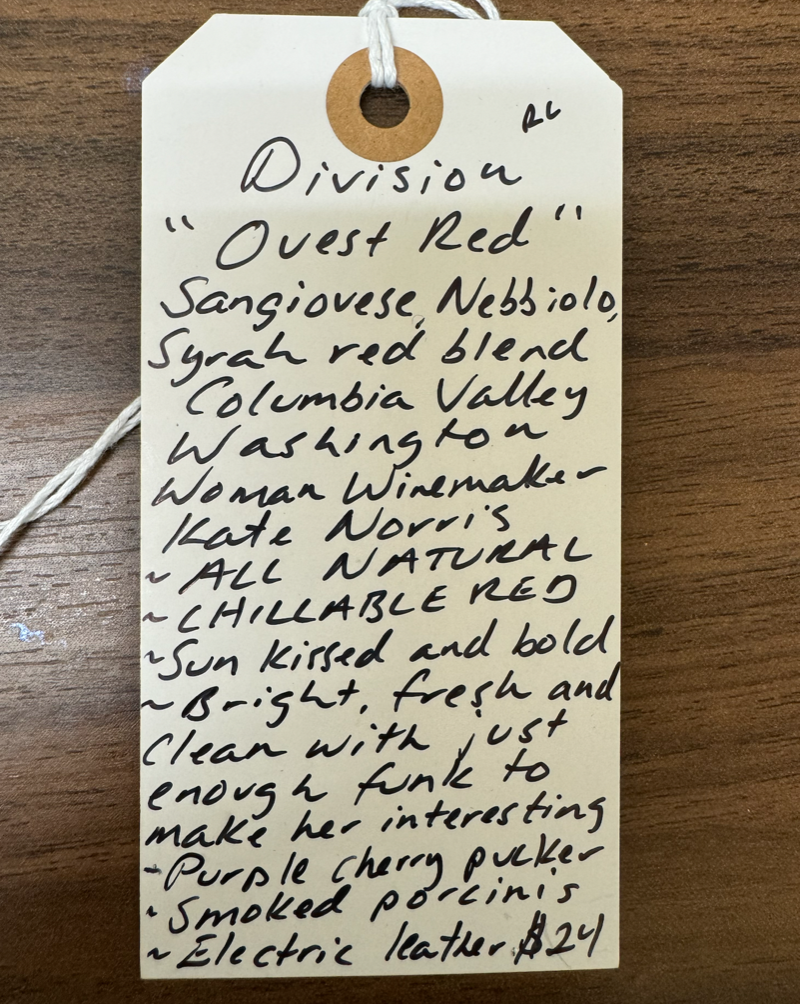 RL
Division
"Ouest Red"
Sangiovese, Nebbiolo,
Syrah red blend
Columbia Valley
Washington
Woman Winemaker
Kate Norris
~ ALL NATURAL
~ CHILLABLE RED
~Sun kissed and bold
~Bright, fresh and
clean with just
enough funk to
make her interesting
~Purple cherry pucker
~Smoked porcinis
~Electric leather $24